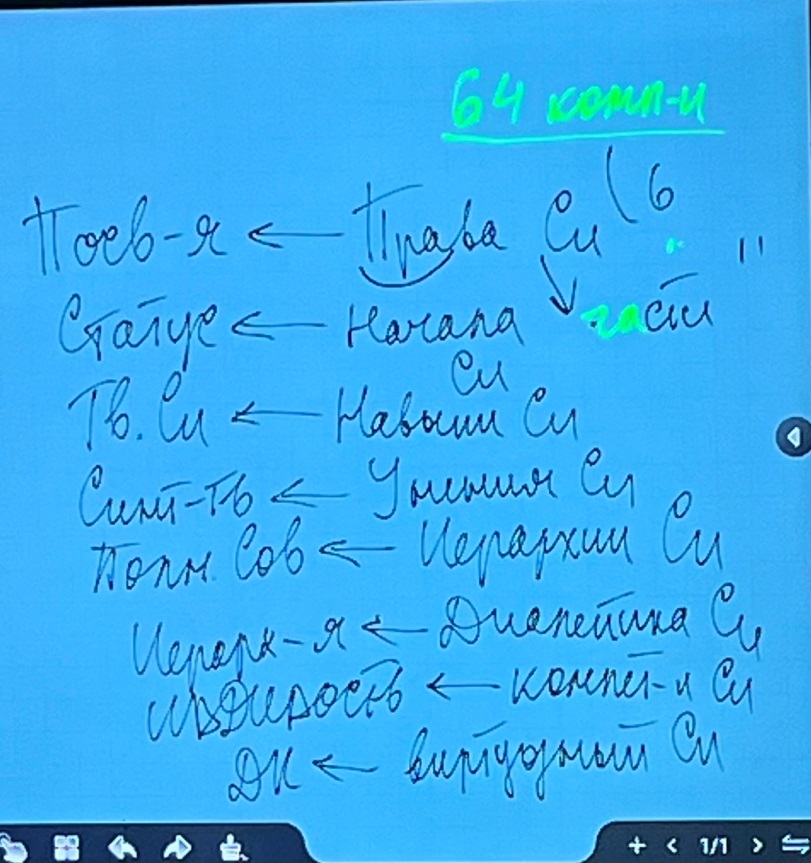 64 комп-и
6
Посв-я ← Права Си "
Статус ← Начала части
Си
Тв. Си ← Навыки Си
Синт-Тв ← Умения Си
Полн. Сов ← Иерархии Си
Иерарх-я ← Диалетика Си
ИВДИВОСТЬ ← компет-и Си
ДК ← виртуозный Си
1/1